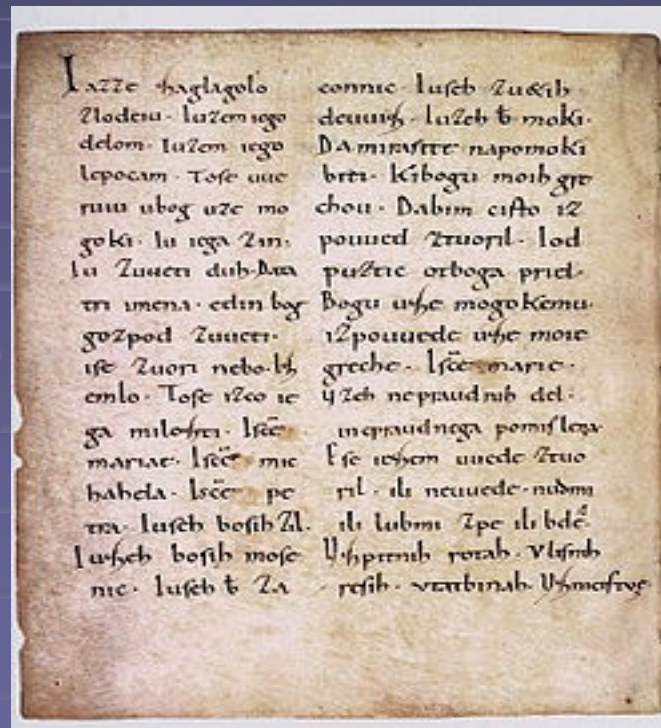 Iazze ſzaglagolo
zlodeiu · Iuzem iego
delom · Iuzem iego
lepocam · Toſe uue
ruiu ubog uze mo
goki · Iu iega zin ·
Iu zuueti duh · Data
tri imena · edin bog
gozpod zuueti ·
iſe zuori nebo · Iſz
emlo · Toſe izco ie
ga miloſti · Iſcē
mariae · Iſcē mic
hahela · Iſcē pe
tra · Iuſeh boſih zil ·
Iuſzeh boſih moſe
nic · Iuſeh ƀ za
connic · Iuſeh zu&ih
deuuiſz · Iuzeh ƀ moki ·
Da miraſite napomoki
biti · Kibogu moih gre
chou · Dabim ciſto iz
pouued ztuoril · Iod
puztic otboga priel ·
Bogu uſze mogokemu ·
izpouuede uſze moie
greche · Iſcē marie ·
Uzeh nepraudnih del ·
inepraudnega pomiſlena
Eſe ieſzem uuede ztuo
ril · ili neuuede · nudmi
ili lubmi zpe ili bdē ·
Uſzpitnih rotah · Vliſnih
reſih · Vtatbinah ·